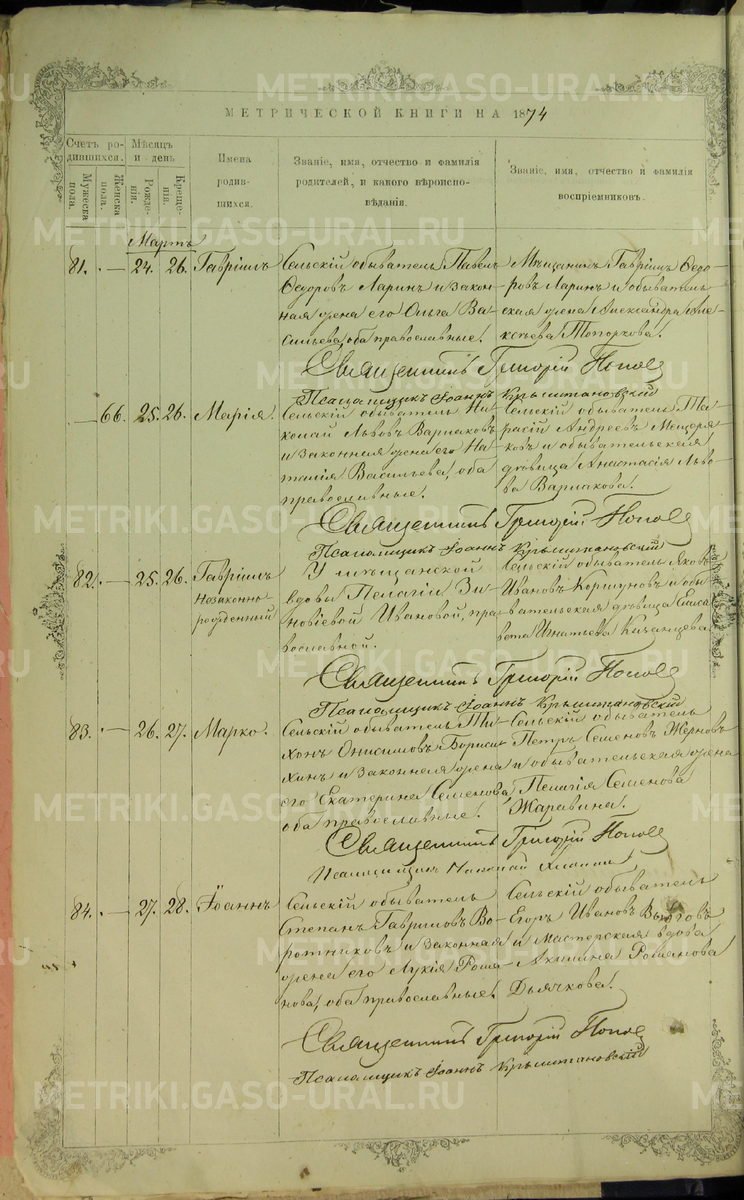 METRIKI.GASO-URAL.RU
МЕТРИЧЕСКОЙ КНИГИ НА 1874
Счетъ родившихся.
Мужеска пола.
Женска пола.
Мѣсяцъ и день
Рожденія.
Крещенія.
Имена родившихся.
Званіе, имя, отчество и фамилія родителей, и какого вѣроисповѣданія.
Званіе, имя, отчество и фамилія воспріемниковъ.
Мартъ
81. — 24. 26. Гавріилъ
Сельскій обыватель Павелъ
Ѳедоровъ Ларинъ и закон-
ная жена его Ольга Ва-
сильева, оба православные.
Мѣщанинъ Гавріилъ Ѳедо-
ровъ Ларинъ и обыватель-
ская жена Александра Але-
ксѣева Топоркова.
Священникъ Григорій Попов
Псаломщикъ Іоаннъ Крыштановскій
— 66. 25. 26. Марія.
Сельскій обыватель Ни-
колай Львовъ Варлаковъ
и законная жена его На-
талія Васильева, оба
православные.
Сельскій обыватель Та-
расій Андреевъ Мещеря-
ковъ и обывательская
дѣвица Анастасія Льво-
ва Варлакова.
Священникъ Григорій Попов
Псаломщикъ Іоаннъ Крыштановскій
82. — 25. 26. Гавріилъ
незаконно-
рожденный
У мѣщанской
вдовы Пелагіи Зи-
новіевой Ивановой, пра-
вославной.
Сельскій обыватель Яковъ
Ивановъ Коршуновъ и обы-
вательская дѣвица Елиса-
вета Игнатьева Казанцева
Священникъ Григорій Попов
Псаломщикъ Іоаннъ Крыштановскій
83. — 26. 27. Марко.
Сельскій обыватель Ти-
хонъ Онисимовъ Бориси-
хинъ и законная жена
его Екатерина Семенова,
оба православные.
Сельскій обыватель
Петръ Семеновъ Жерновъ
и обывательская жена
Пелагія Семенова
Жаравина.
Священникъ Григорій Попов
Псаломщикъ Николай
84. — 27. 28. Іоаннъ
Сельскій обыватель
Степанъ Гавриловъ Во-
ротниковъ и законная
жена его Лукія Рома-
нова, оба православные.
Сельскій обыватель
Егоръ Ивановъ
и Мастерская вдова
Акилина Романова
Дьячкова.
Священникъ Григорій Попов
Псаломщикъ Іоаннъ Крыштановскій